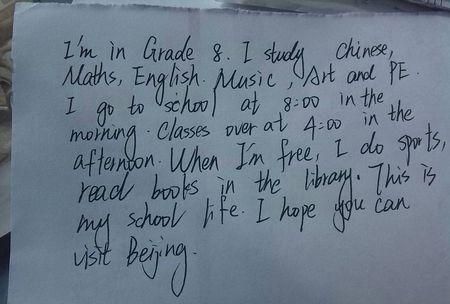 I'm in Grade 8. I study Chinese,
Maths, English. Music, Art and PE.
I go to school at 8:00 in the
morning. Classes over at 4:00 in the
afternoon. When I'm free, I do sports,
read books in the library. This is
my school life. I hope you can
visit Beijing.